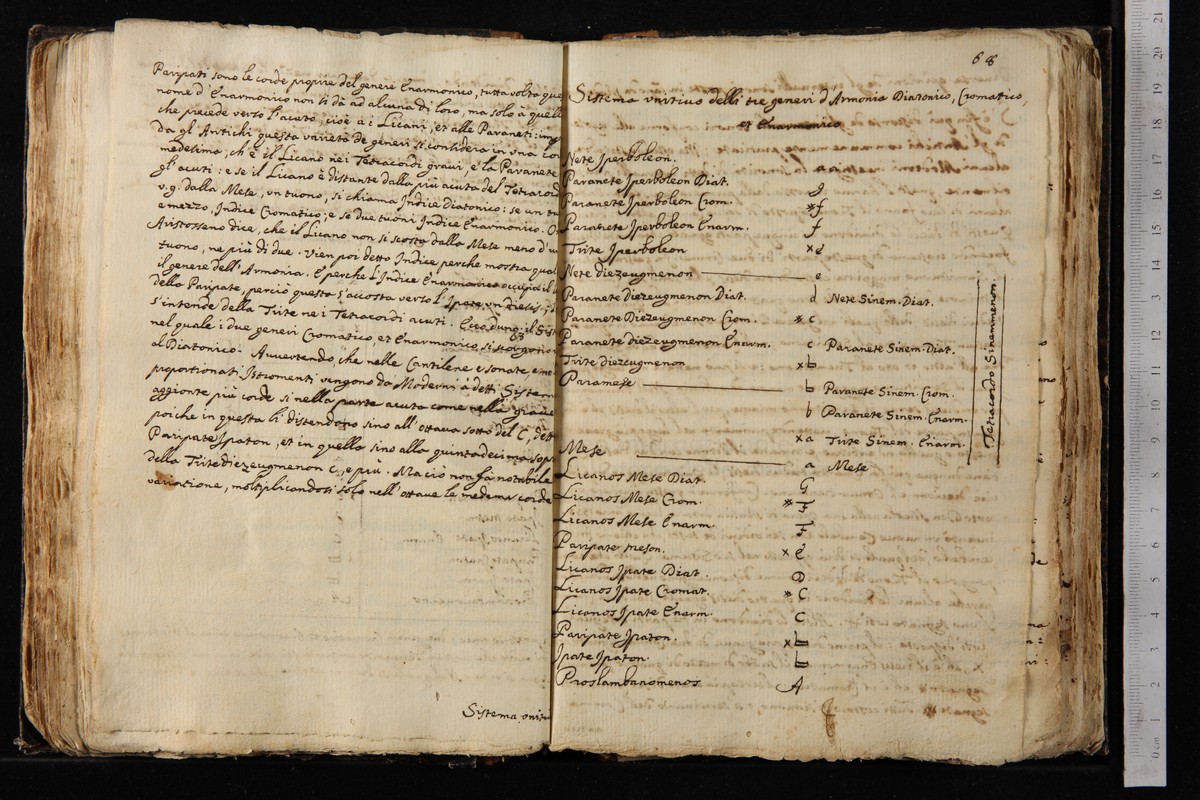 Paripati sono le corde proprie del genere Enarmonico, tutta volta que
nome d'Enarmonico non si dà ad alcuna di loro, ma solo à quell
che precede verso l'acuto, cioè a i Licani, et alle Paraneti: imp
da gl'Antichi questa varietà de generi si considera in una cor
medesima, ch'è il Licano nei Tetracordi gravi, e la Paranete
gl'acuti: e se il Licano è distante dalla più acuta del Tetracord
v.g. dalla Mese, un tuono, si chiama Indice Diatonico: se un tu
e mezzo, Indice Cromatico; e se due tuoni Indice Enarmonico. O
Aristosseno dice, che il Licano non si scosta dalla Mese meno d'u
tuono, ne più di due. Vien poi detto Indice perche mostra qual
il genere dell'Armonia. E perche l'Indice Enarmonico occupa il
della Paripate, perciò questa s'accosta verso l'Ipate un diesis,
s'intende della Trite ne i Tetracordi acuti. Ecco dunq; il Sist
nel quale i due generi Cromatico, et Enarmonico, si
al Diatonico. Avvertendo, che nelle Cantilene e sonate, e ne
proportionati Istromenti vengono da Moderni à detti Sistem
aggionte più corde sì nella parte acuta come nella grave
poiche in questa si distendono sino all'ottava sotto del C, dett
Paripate Ipaton, et in quella sino alla quintadecima sop
della Trite diezeugmenon C, e più. Ma ciò non fà notabile
variatione, moltiplicandosi solo nell'ottave le medeme corde
Sistema unit
68
Sistema unitivo delli tre generi d'Armonia Diatonico, Cromatico,
et Enarmonico
Nete Iperboleon. aa
Paranete Iperboleon Diat. g
Paranete Iperboleon Crom. *f
Paranete Iperboleon Enarm. f
Trite Iperboleon x e
Nete diezeugmenon e
Paranete Diezeugmenon Diat. d Nete Sinem. Diat.
Paranete Diezeugmenon Crom. * c
Paranete diezeugmenon Enarm. c Paranete Sinem. Diat.
Trite diezeugmenon x b
Paramese b Paranete Sinem. Crom.
b Paranete Sinem. Enarm.
x a Trite Sinem. Enarm.
Mese a Mese
Tetracordo Sinemmenon.
Licanos Mese Diat. G
Licanos Mese Crom. * F
Licanos Mese Enarm. F
Paripate meson. x E
Licanos Ipate Diat. D
Licanos Ipate Cromat. * C
Licanos Ipate Enarm. C
Paripate Ipaton. x b
Ipate Ipaton. b
Proslambanomenos A